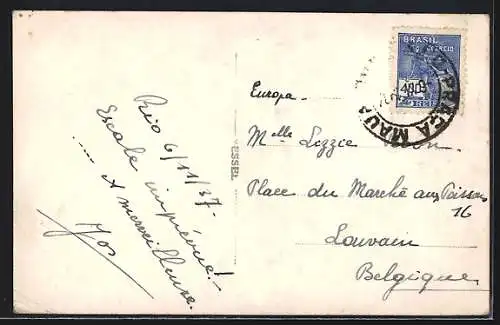 Rio 6/11/37.
Escale imprévue!
.... et merveilleuse.
Jos
WESSEL
BRASIL
CORREIO
400
REIS
PRAÇA MAUÁ
Europa.
Melle Lizzie
Place du Marché aux Poissons
16
Louvain
Belgique